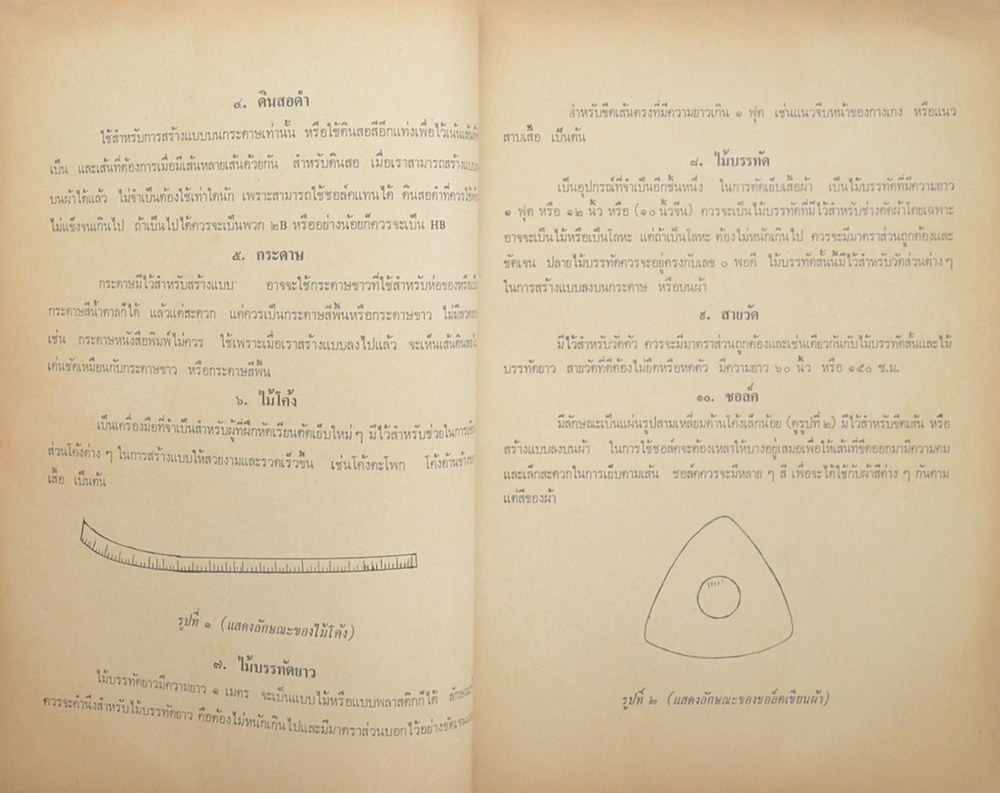 ๔. ดินสอดำ
ใช้สำหรับการสร้างแบบบนกระดาษเท่านั้น หรือใช้ดินสอสีอีกแท่งเพื่อไว้เน้นเส้นที่
เป็น และเส้นที่ต้องการเมื่อมีเส้นหลายเส้นด้วยกัน สำหรับดินสอ เมื่อเราสามารถสร้างแบบ
บนผ้าได้แล้ว ไม่จำเป็นต้องใช้เท่าใดนัก เพราะสามารถใช้ชอล์คแทนได้ ดินสอดำที่ควรใช้
ไม่แข็งจนเกินไป ถ้าเป็นไปได้ควรจะเป็นพวก ๒B หรืออย่างน้อยก็ควรจะเป็น HB
๕. กระดาษ
กระดาษมีไว้สำหรับสร้างแบบ อาจจะใช้กระดาษขาวที่ใช้สำหรับห่อของหรือ
กระดาษสีน้ำตาลก็ได้ แล้วแต่สะดวก แต่ควรเป็นกระดาษสีพื้นหรือกระดาษขาว ไม่มี
เช่น กระดาษหนังสือพิมพ์ไม่ควร ใช้เพราะเมื่อเราสร้างแบบลงไปแล้ว จะเห็นเส้นดินสอ
เด่นชัดเหมือนกับกระดาษขาว หรือกระดาษสีพื้น
๖. ไม้โค้ง
เป็นเครื่องมือที่จำเป็นสำหรับผู้ที่ฝึกหัดเรียนตัดเย็บใหม่ ๆ มีไว้สำหรับช่วยในการ
ส่วนโค้งต่าง ๆ ในการสร้างแบบให้สวยงามและรวดเร็วขึ้น เช่นโค้งตะโพก โค้งด้านข้าง
เสื้อ เป็นต้น
รูปที่ ๑ (แสดงลักษณะของไม้โค้ง)
๗. ไม้บรรทัดยาว
ไม้บรรทัดยาวมีความยาว ๑ เมตร จะเป็นแบบไม้หรือแบบพลาสติกก็ได้
ควรจะคำนึงสำหรับไม้บรรทัดยาว คือต้องไม่หนักเกินไปและมีมาตราส่วนบอกไว้อย่างชัดเจน
สำหรับขีดเส้นตรงที่มีความยาวเกิน ๑ ฟุต เช่นแนวจีบหน้าของกางเกง หรือแนว
สาบเสื้อ เป็นต้น
๘. ไม้บรรทัด
เป็นอุปกรณ์ที่จำเป็นอีกชิ้นหนึ่ง ในการตัดเย็บเสื้อผ้า เป็นไม้บรรทัดที่มีความยาว
๑ ฟุต หรือ ๑๒ นิ้ว หรือ (๑๐ นิ้วจีน) ควรจะเป็นไม้บรรทัดที่มีไว้สำหรับช่างตัดผ้าโดยเฉพาะ
อาจจะเป็นไม้หรือเป็นโลหะ แต่ถ้าเป็นโลหะ ต้องไม่หนักเกินไป ควรจะมีมาตราส่วนถูกต้องและ
ชัดเจน ปลายไม้บรรทัดควรจะอยู่ตรงกับเลข ๐ พอดี ไม้บรรทัดสั้นนี้มีไว้สำหรับวัดส่วนต่าง ๆ
ในการสร้างแบบลงบนกระดาษ หรือบนผ้า
๙. สายวัด
มีไว้สำหรับวัดตัว ควรจะมีมาตราส่วนถูกต้องและเช่นเดียวกันกับไม้บรรทัดสั้นและไม้
บรรทัดยาว สายวัดที่ดีต้องไม่ยืดหรือหดตัว มีความยาว ๖๐ นิ้ว หรือ ๑๕๐ ซ.ม.
๑๐. ชอล์ค
มีลักษณะเป็นแผ่นรูปสามเหลี่ยมด้านโค้งเล็กน้อย (ดูรูปที่ ๒) มีไว้สำหรับขีดเส้น หรือ
สร้างแบบลงบนผ้า ในการใช้ชอล์คจะต้องเหลาให้บางอยู่เสมอเพื่อให้เส้นที่ขีดออกมามีความคม
และเล็กสะดวกในการเย็บตามเส้น ชอล์คควรจะมีหลาย ๆ สี เพื่อจะได้ใช้กับผ้าสีต่าง ๆ กันตาม
แต่สีของผ้า
รูปที่ ๒ (แสดงลักษณะของชอล์คเขียนผ้า)